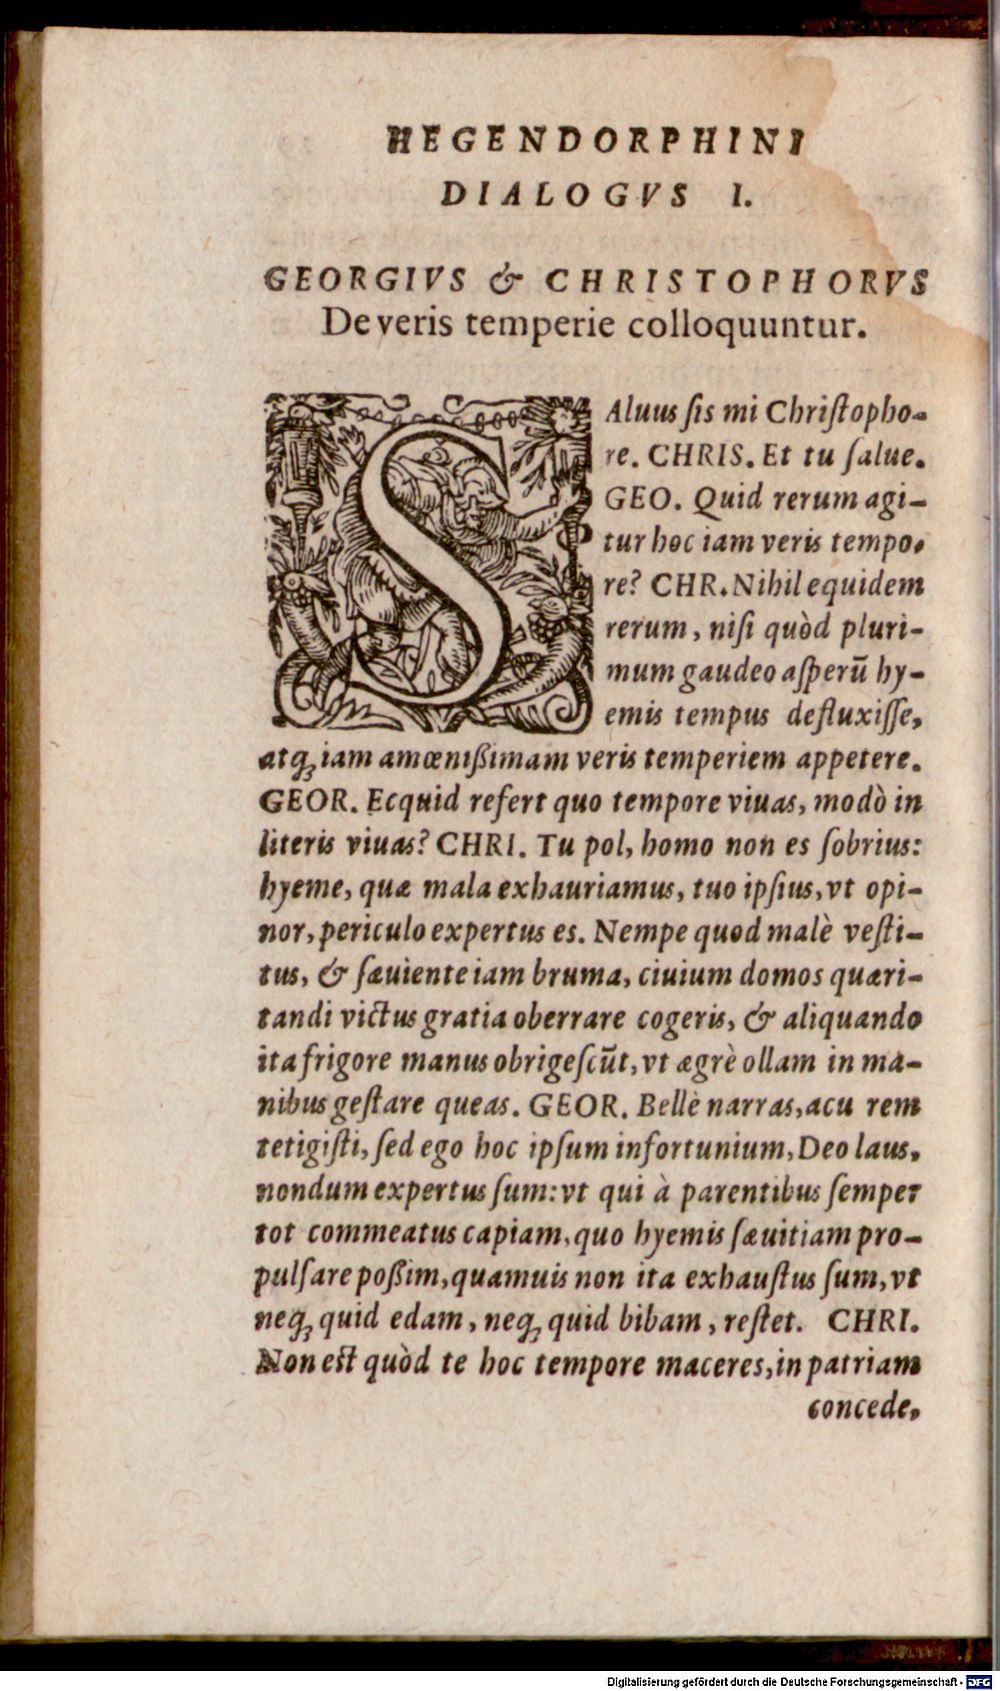 HEGENDORPHINI
DIALOGVS I.
GEORGIVS & CHRISTOPHORVS
De veris temperie colloquuntur.
SAluus ſis mi Chriſtopho-
re. CHRIS. Et tu ſalue.
GEO. Quid rerum agi-
tur hoc iam veris tempo-
re? CHR. Nihil equidem
rerum, niſi quòd pluri-
mum gaudeo aſperū hy-
emis tempus defluxiſſe,
atq; iam amœnißimam veris temperiem appetere.
GEOR. Ecquid refert quo tempore viuas, modò in
literis viuas? CHRI. Tu pol, homo non es ſobrius:
hyeme, quæ mala exhauriamus, tuo ipſius, vt opi-
nor, periculo expertus es. Nempe quod malè veſti-
tus, & ſæuiente iam bruma, ciuium domos quæri-
tandi victus gratia oberrare cogeris, & aliquando
ita frigore manus obrigeſcūt, vt ægrè ollam in ma-
nibus geſtare queas. GEOR. Bellè narras, acu rem
tetigiſti, ſed ego hoc ipſum infortunium, Deo laus,
nondum expertus ſum: vt qui à parentibus ſemper
tot commeatus capiam, quo hyemis ſæuitiam pro-
pulſare poßim, quamuis non ita exhauſtus ſum, vt
neq; quid edam, neq; quid bibam, reſtet. CHRI.
Non eſt quòd te hoc tempore maceres, in patriam
concede,
Digitalisierung gefördert durch die Deutsche Forschungsgemeinschaft - DFG